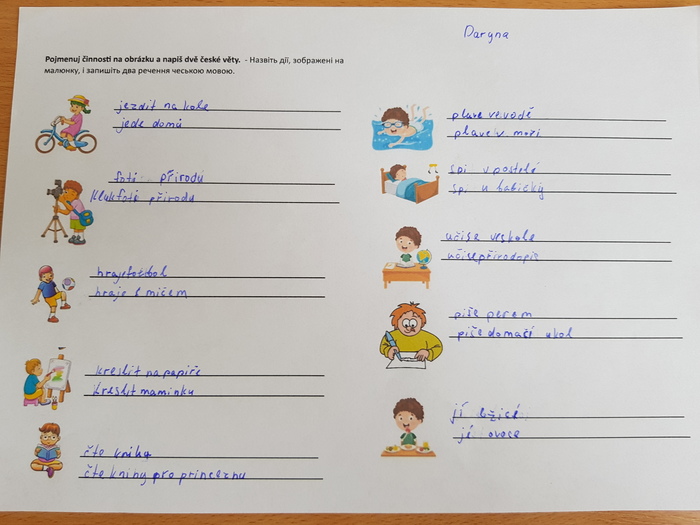 Daryna
Pojmenuj činnosti na obrázku a napiš dvě české věty. - Назвіть дії, зображені на
малюнку, і запишіть два речення чеською мовою.
jezdit na kole
jede domů
fotí přírodu
Kluk fotí přírodu
hraje fotbol
hraje s míčem
kreslit na papíře
kreslit maminku
čte kniha
čte knihy pro princeznu
plave ve vodě
plave v moři
Spí v postelé
Spí u babičky
učí se ve skole
učí se přírodopis
píše perem
píše domačí ukol
jí lžicé
jé ovoce